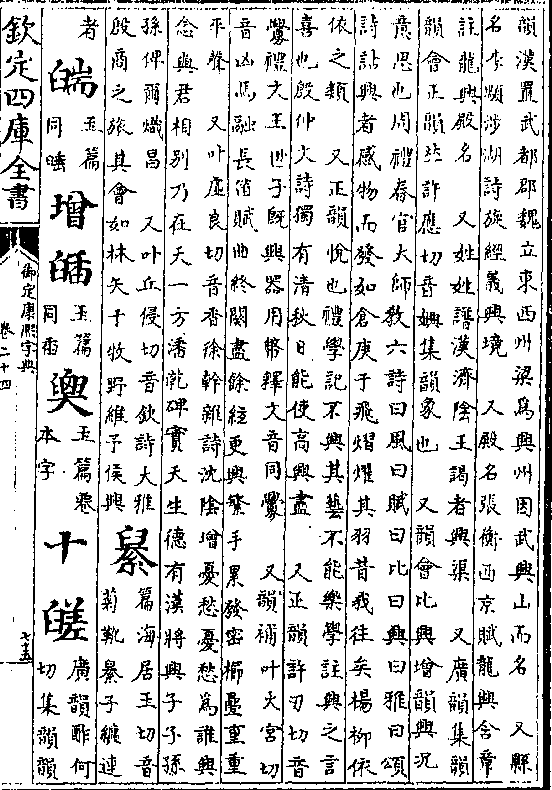 韻漢置武都郡魏立東西州梁為興州因武興山而名　又縣
名李頎涉湖詩旋經義興境　又殿名張衡西京賦龍興含章
註龍興殿名　又姓姓譜漢濟陰王謁者興渠　又廣韻集韻
韻會正韻𠀤許應切音嬹集韻象也　又韻會比興增韻興況
意思也周禮春官大師教六詩曰風曰賦曰比曰興曰雅曰頌
詩詁興者感物而發如倉庚于飛熠燿其羽昔我往矣楊柳依
依之類　又正韻悅也禮學記不興其藝不能樂學註興之言
喜也殷仲文詩獨有清秋日能使高興盡　又正韻許刃切音
釁禮文王世子旣興器用幣釋文音同釁　又韻補叶火宮切
音凶馬融長笛賦曲終闋盡餘絃更興繁手累發密櫛疊重重
平聲　又叶虛良切音香徐幹雜詩沈陰增憂愁憂愁為誰興
念與君相別乃在天一方潘乾碑實天生德有漢將興子子孫
孫俾爾熾昌　又叶丘侵切音欽詩大雅
殷商之旅其會如林矢于牧野維予侯興
篇海居玉切音
菊靴 子 連
者
玉篇
同
增
玉篇
同
玉篇
本字
十
廣韻酢何
切集韻韻
欽定四庫全書
御定康熙字典
卷二十四
七五